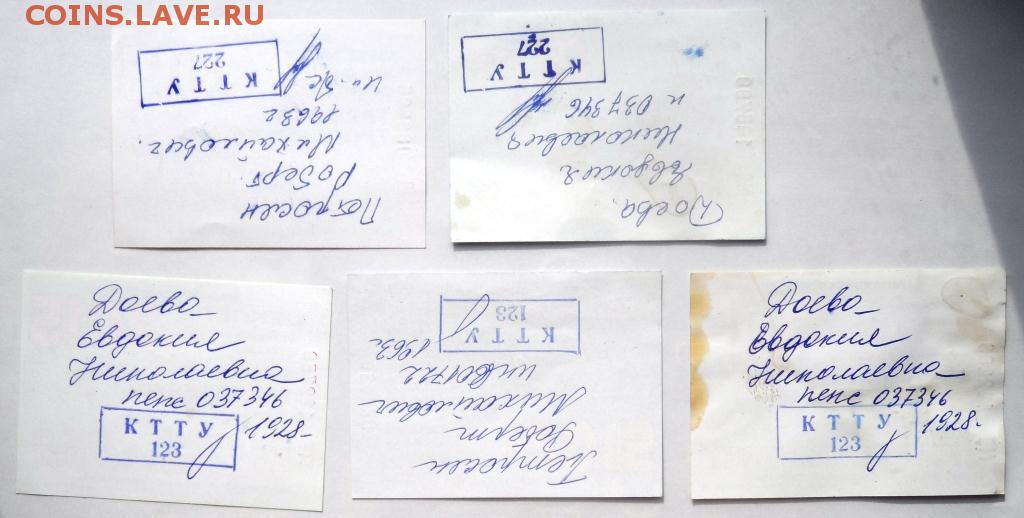 COINS.LAVE.RU
Петросян
Роберт
Михайлович.
1963г
К Т Т У
227
Доева
Евдокия
Николаевна
п 037346
К Т Т У
227
Доева
Евдокия
Николаевна
пенс 037346
1928-
К Т Т У
123
Петросян
Роберт
Михайлович
1963г
К Т Т У
123
Доева
Евдокия
Николаевна
пенс 037346
1928-
К Т Т У
123